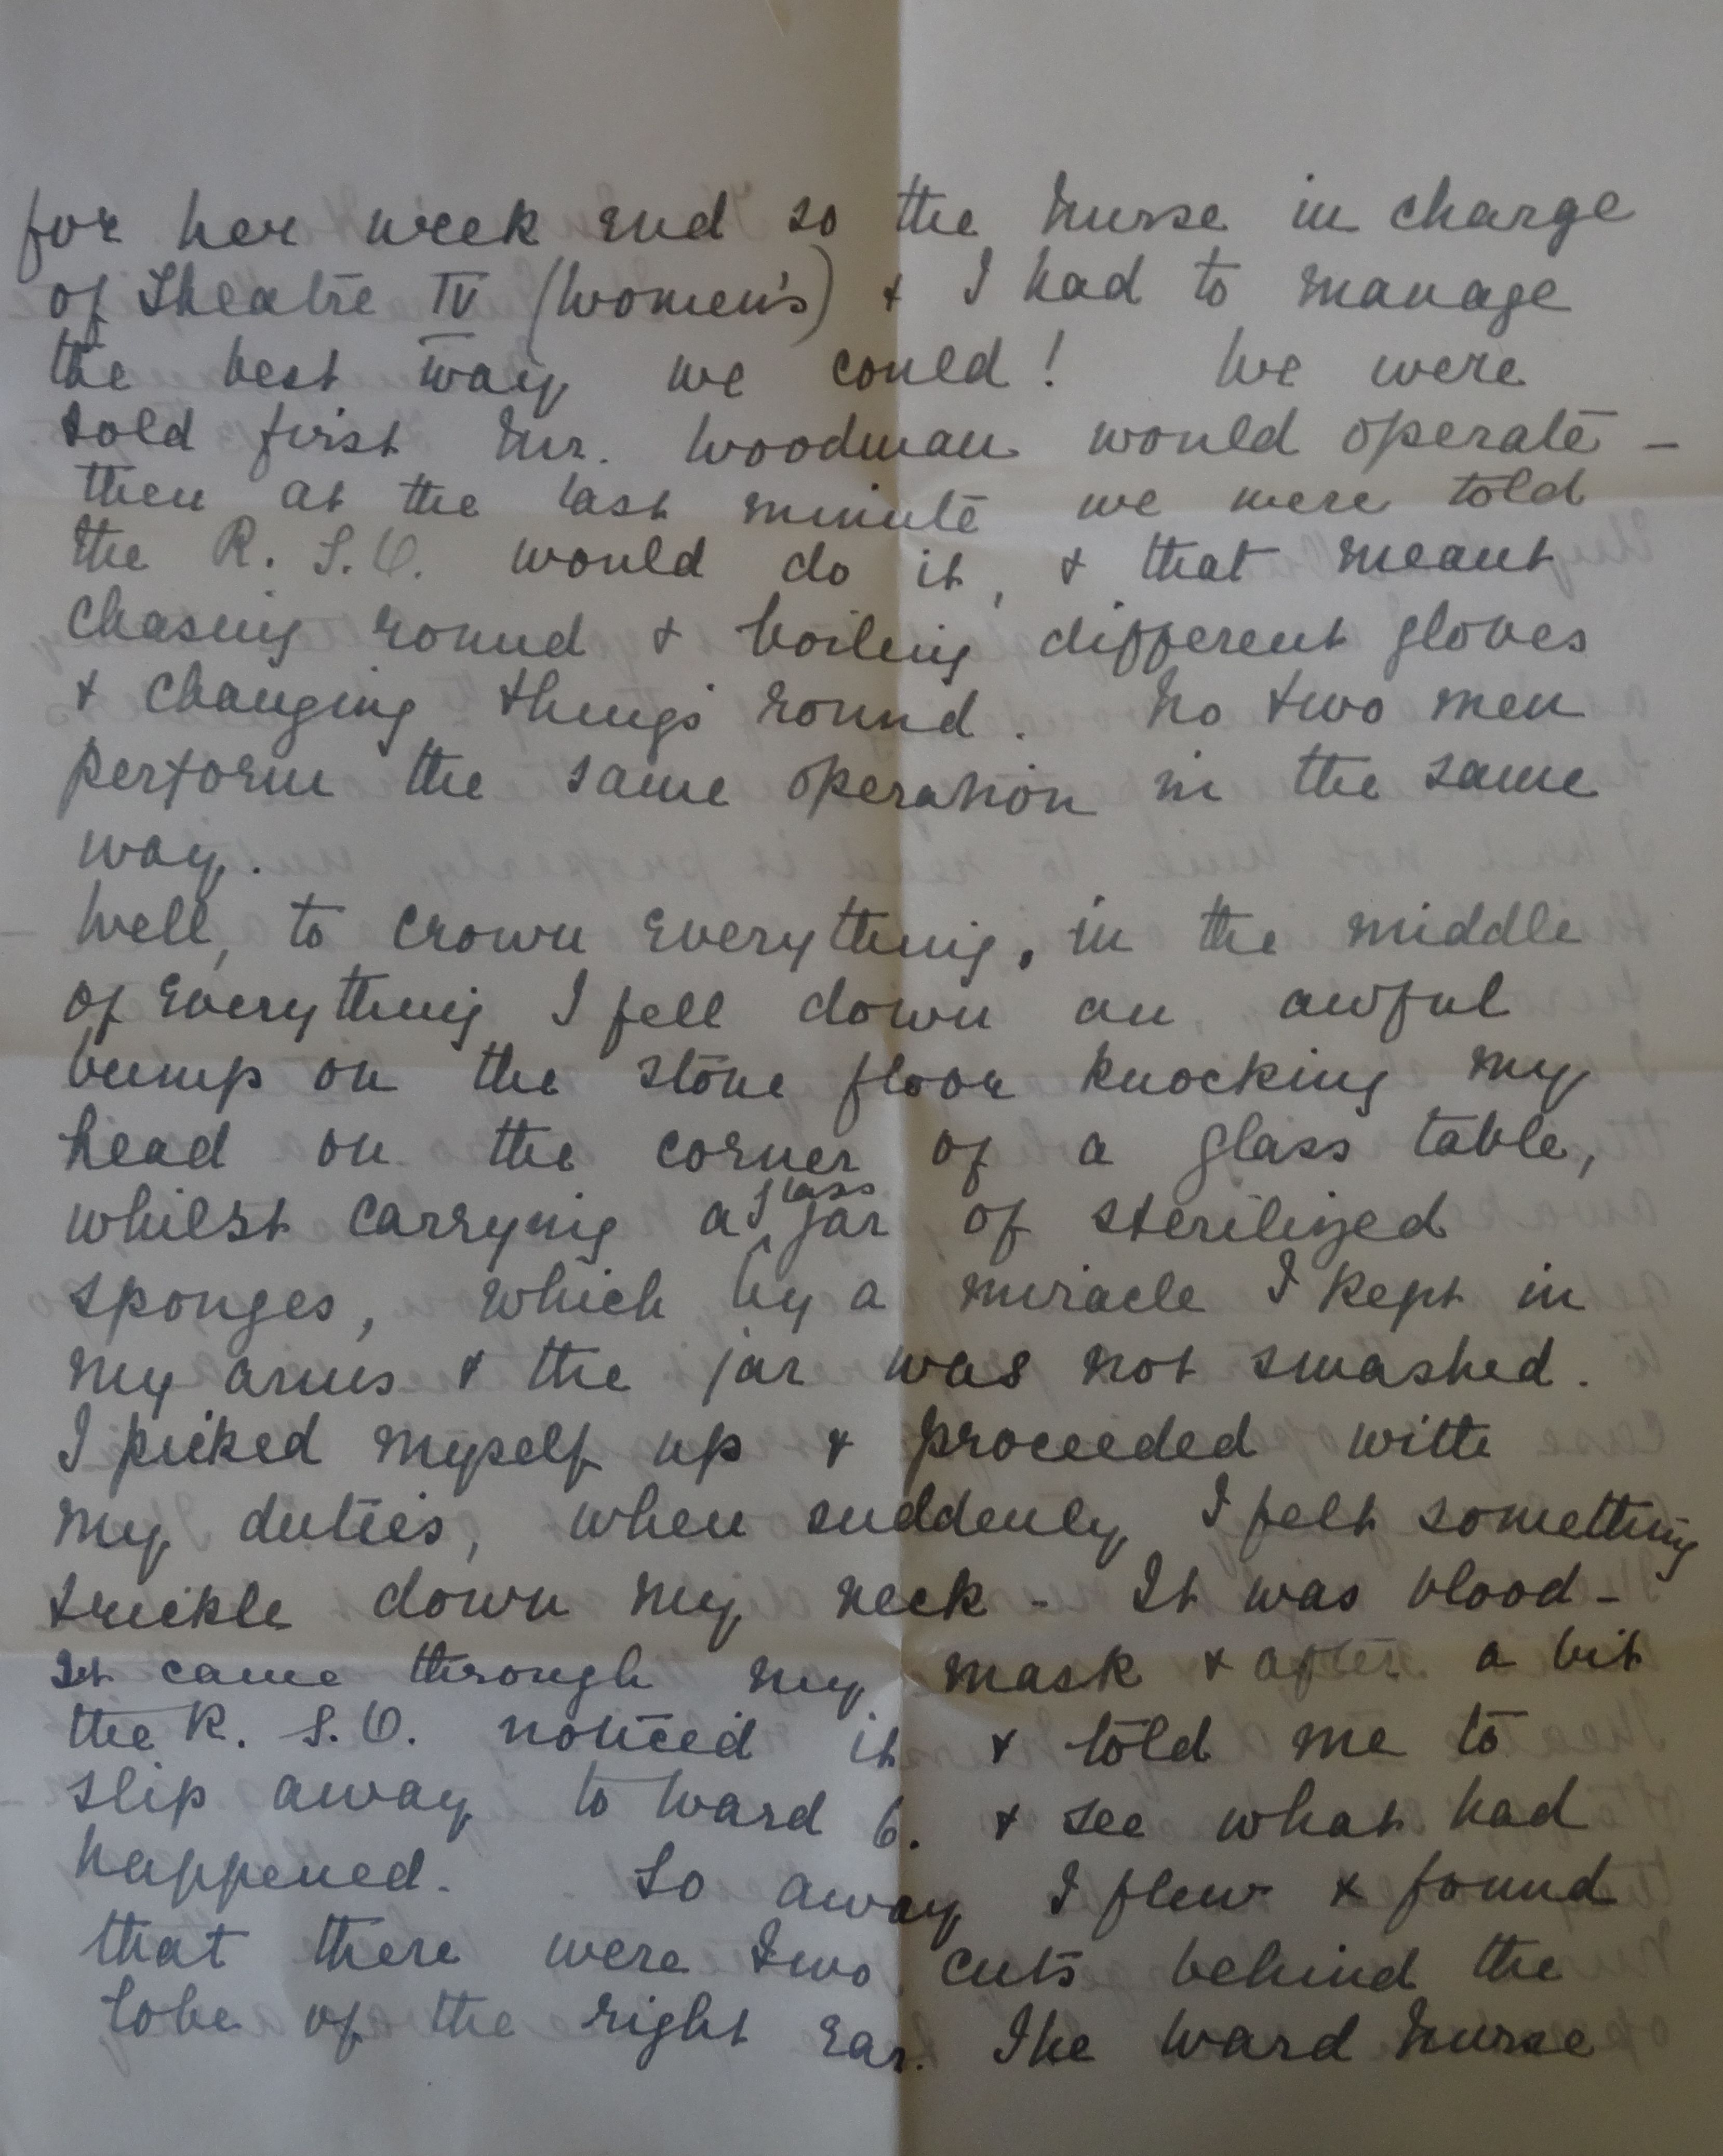 for her week end so the Nurse in charge
of Theatre IV (Women's) & I had to manage
the best way we could! We were
told first Mr. Woodman would operate -
then at the last minute we were told
the R. S.O. would do it, & that meant
chasing round & boiling different gloves
& changing things round. No two men
perform the same operation in the same
way.
Well, to crown everything, in the middle
of everything I fell down an awful
bump on the stone floor knocking my
head on the corner of a glass table,
whilst carrying a glass jar of sterilized
sponges, which by a miracle I kept in
my arms & the jar was not smashed.
I picked myself up & proceeded with
my duties, when suddenly I felt something
trickle down my neck - It was blood -
It came through my mask & after a bit
the R. S.O. noticed it & told me to
slip away to Ward 6. & see what had
happened. So away I flew & found
that there were two cuts behind the
lobe of the right ear. The Ward Nurse